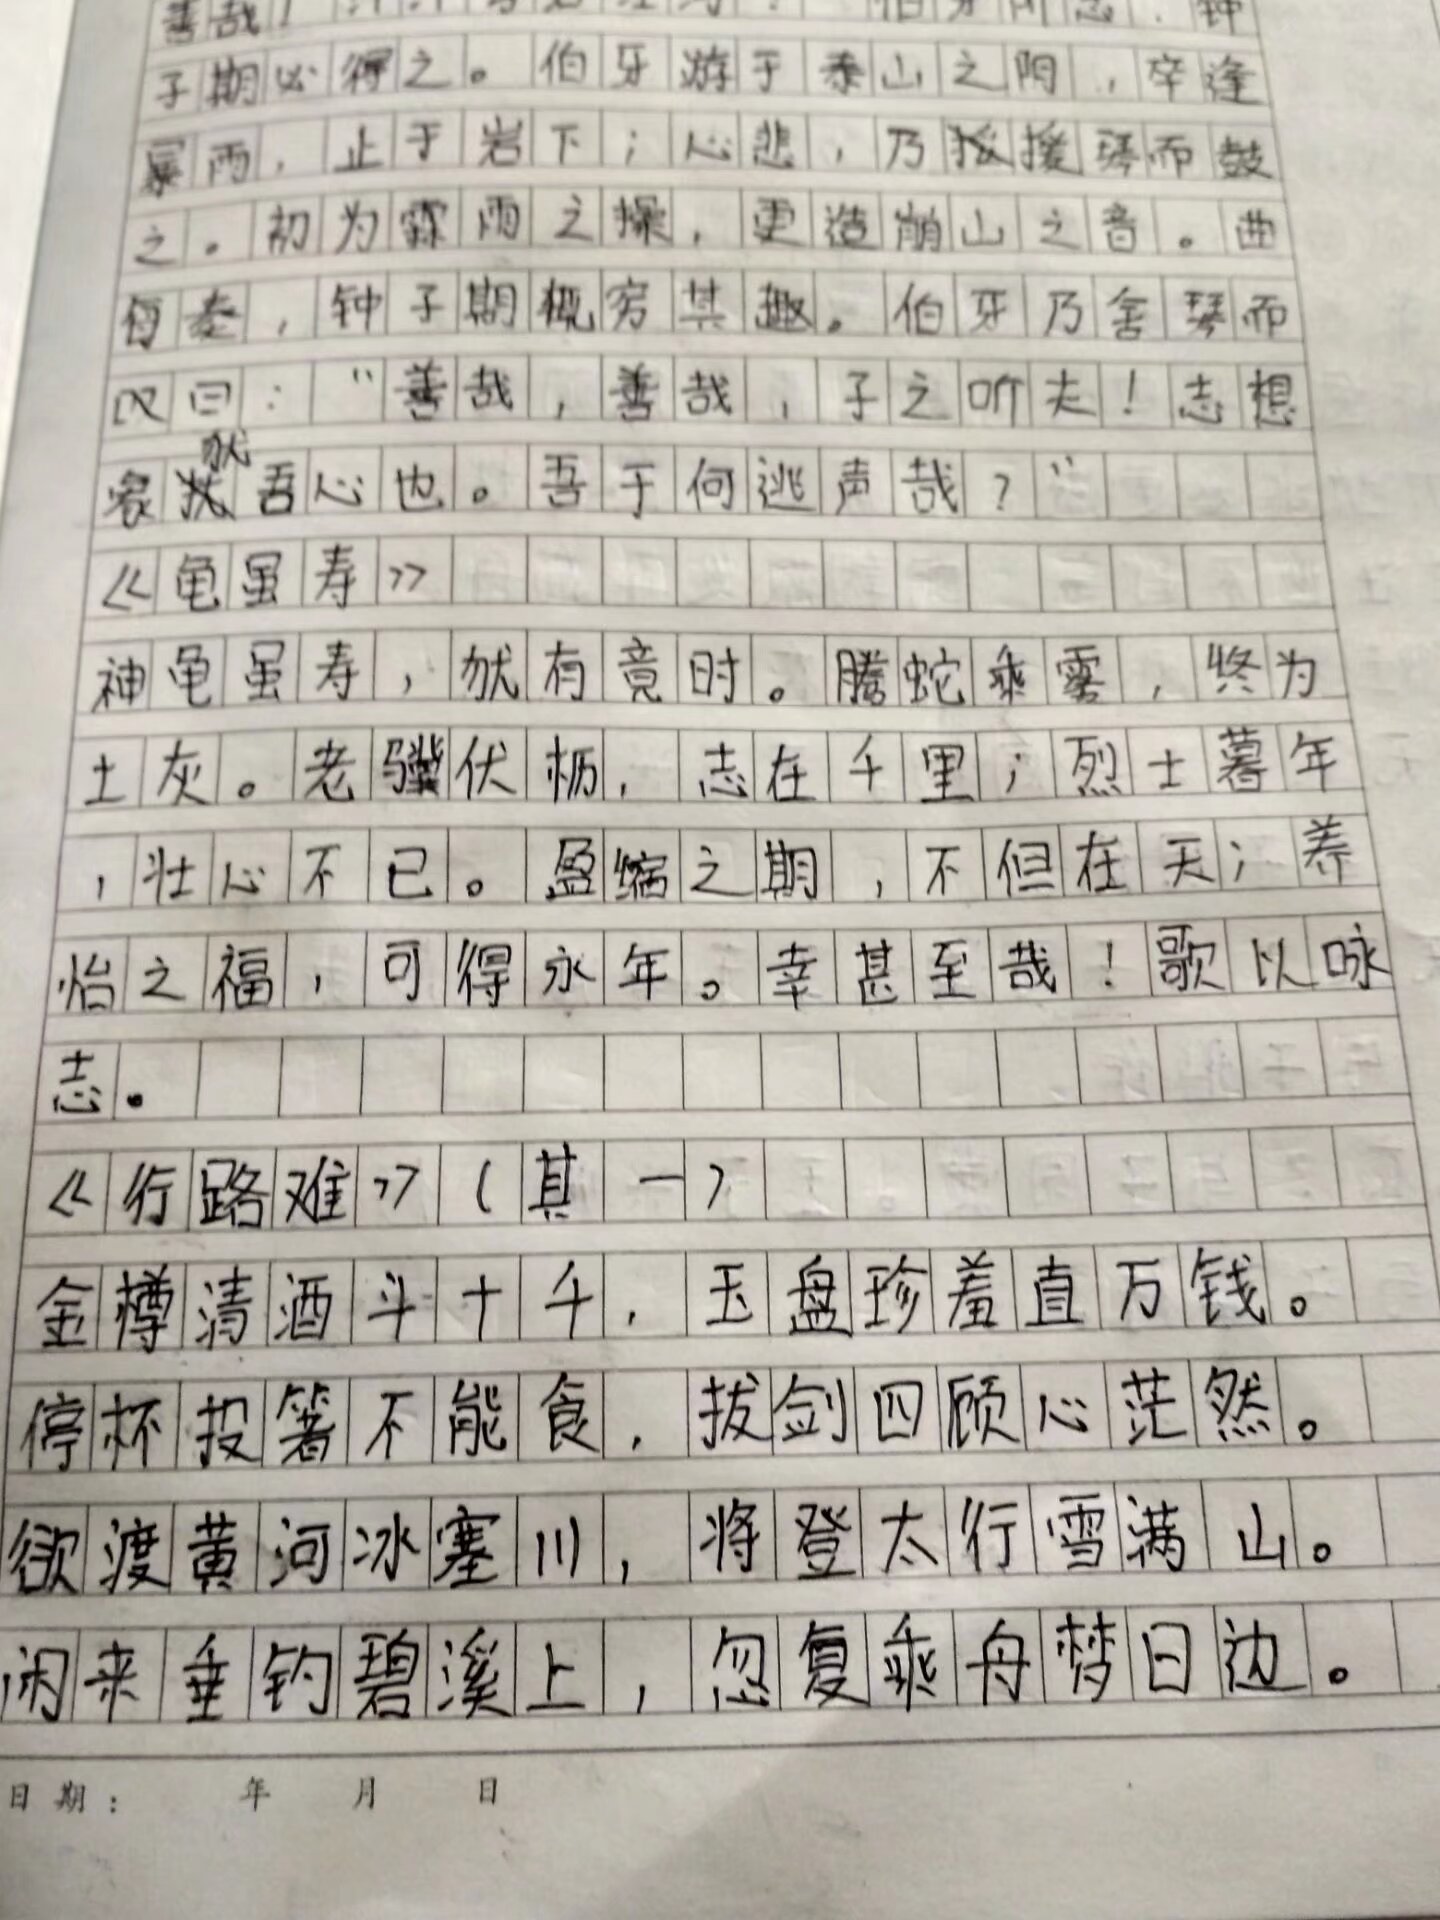 善哉！洋洋
伯牙所念，钟
子期必得之。伯牙游于泰山之阴，卒逢
暴雨，止于岩下；心悲，乃援琴而鼓
之。初为霖雨之操，更造崩山之音。曲
每奏，钟子期概穷其趣。伯牙乃舍琴而
叹曰：“善哉，善哉，子之听夫！志想
象犹吾心也。吾于何逃声哉？”
《龟虽寿》
神龟虽寿，犹有竟时。腾蛇乘雾，终为
土灰。老骥伏枥，志在千里；烈士暮年
，壮心不已。盈缩之期，不但在天；养
怡之福，可得永年。幸甚至哉！歌以咏
志。
《行路难》（其一）
金樽清酒斗十千，玉盘珍羞直万钱。
停杯投箸不能食，拔剑四顾心茫然。
欲渡黄河冰塞川，将登太行雪满山。
闲来垂钓碧溪上，忽复乘舟梦日边。
日期： 年 月 日